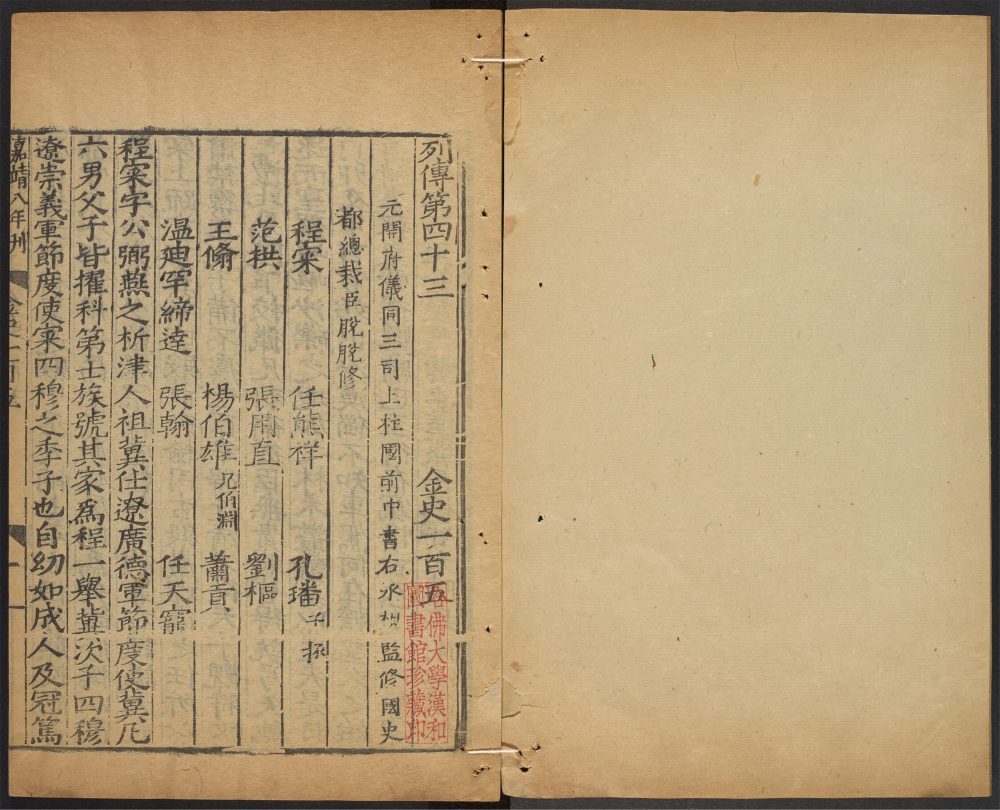 列傳第四十三　金史一百五
元開府儀同三司上柱國前中書右丞相監修國史
都總裁臣脫脫修
程寀　任熊祥　孔璠子拯
范拱　張用直　劉樞
王翛　楊伯雄兄伯淵　蕭貢
溫迪罕締達　張翰　任天寵
程寀字公弼燕之析津人祖冀仕遼廣德軍節度使冀凡
六男父子皆擢科第士族號其家爲程一舉冀次子四穆
遼崇義軍節度使寀四穆之季子也自幼如成人及冠篤
嘉靖八年刊
哈佛大學漢和
圖書館珍藏印